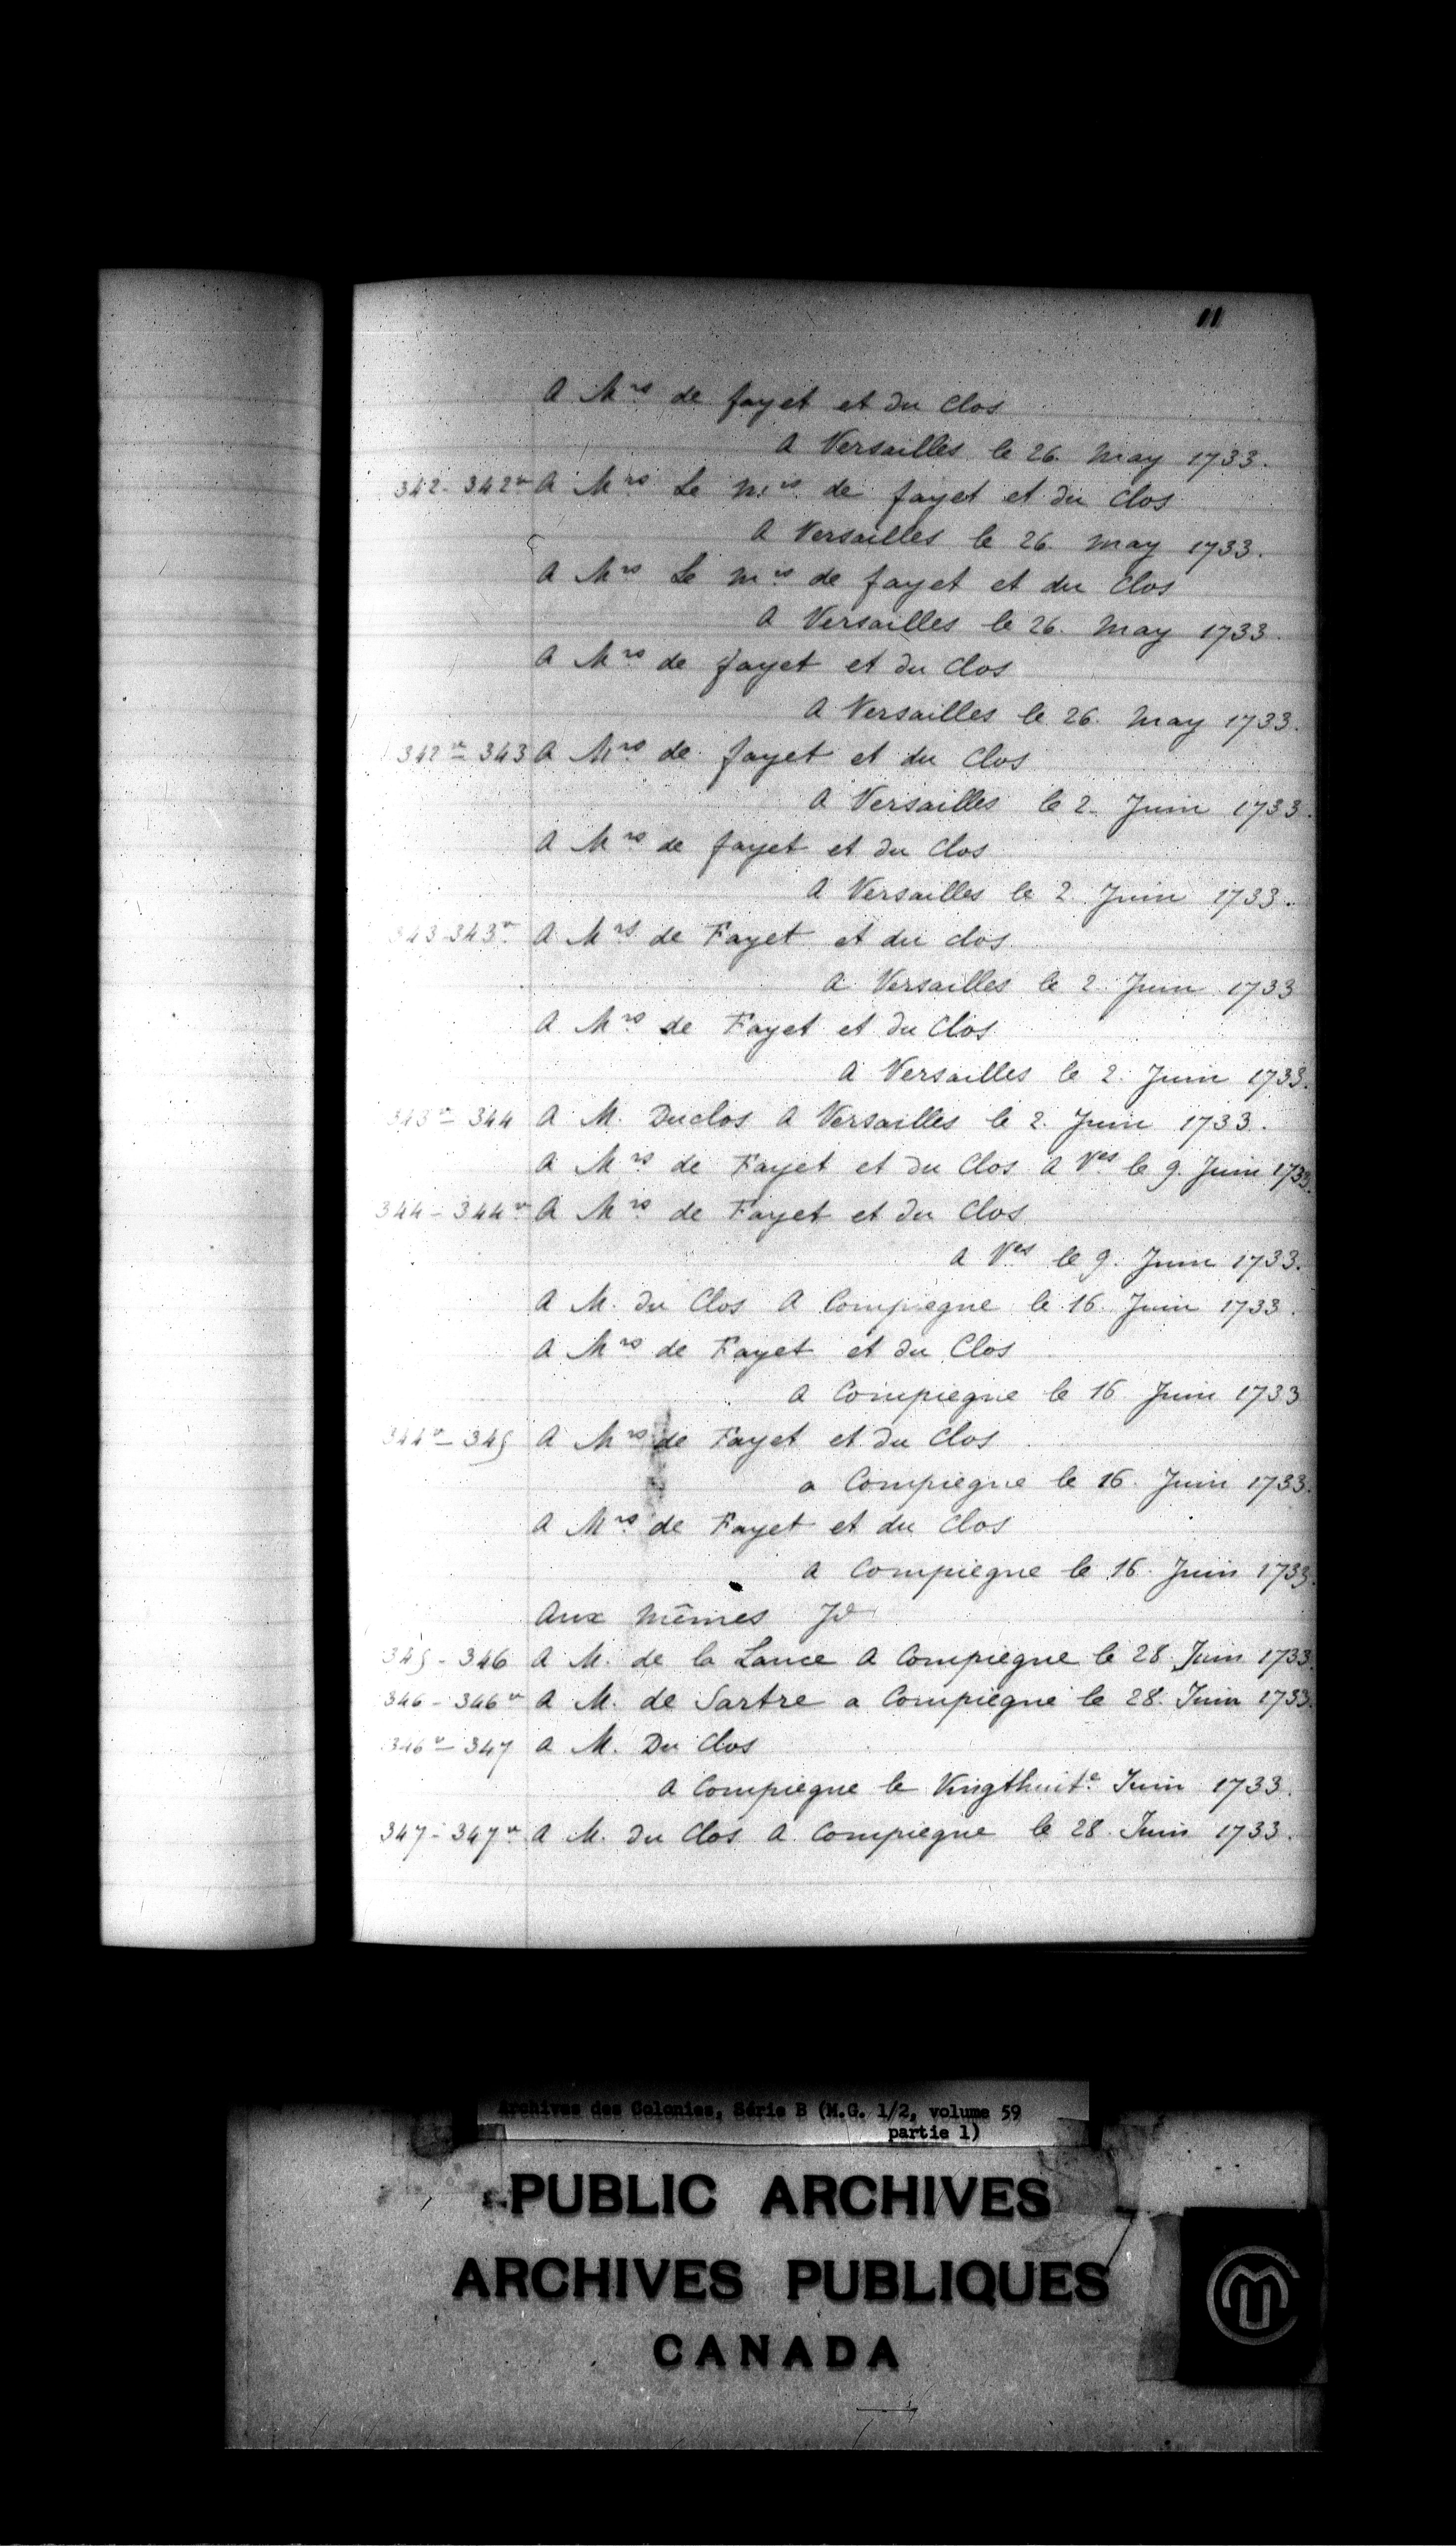 11
A Mrs de fayet et du Clos
A Versailles le 26. May 1733.
342-342vo A Mrs Le Mis de fayet et du Clos
A Versailles le 26. May 1733.
A Mrs Le Mis de fayet et du Clos
A Versailles le 26. May 1733.
A Mrs de fayet et du Clos
A Versailles le 26. May 1733.
342vo-343 A Mrs de fayet et du Clos
A Versailles le 2. Juin 1733.
A Mrs de fayet et du Clos
A Versailles le 2. Juin 1733.
343-343vo A Mrs de Fayet et du clos
A Versailles le 2. Juin 1733
A Mrs de Fayet et du Clos
A Versailles le 2. Juin 1733.
343vo-344 A M. Duclos A Versailles le 2. Juin 1733.
A Mrs de Fayet et du Clos A Ves le 9. Juin 1733.
344-344vo A Mrs de Fayet et du Clos
A Ves le 9. Juin 1733.
A M. du Clos A Compiegne le 16. Juin 1733.
A Mrs de Fayet et du Clos
A Compiegne le 16 Juin 1733
344vo-345 A Mrs de Fayet et du Clos
a Compiegne le 16. Juin 1733.
A Mrs de Fayet et du Clos
A Compiegne le 16. Juin 1733.
Aux mêmes Jd
345-346 A M. de la Lance A Compiegne le 28. Juin 1733.
346-346vo A M. de Sartre a Compiegne le 28. Juin 1733.
346vo-347 A M. Du Clos
A Compiegne le Vingthuite Juin 1733.
347-347vo A M. du Clos A Compiegne le 28. Juin 1733.
Archives des Colonies, Série B (M.G. 1/2, volume 59
partie 1)
PUBLIC ARCHIVES
ARCHIVES PUBLIQUES
CANADA